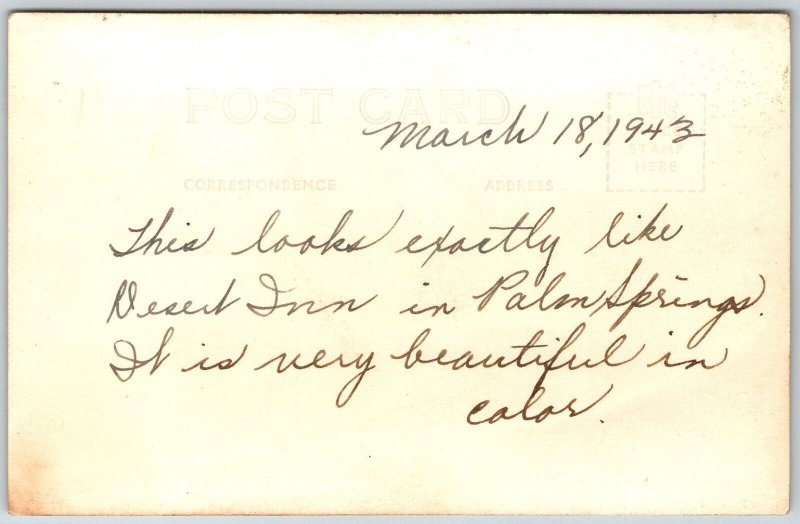 POST CARD
March 18, 1943
STAMP
HERE
CORRESPONDENCE
ADDRESS
This looks exactly like
Desert Inn in Palm Springs.
It is very beautiful in
color.